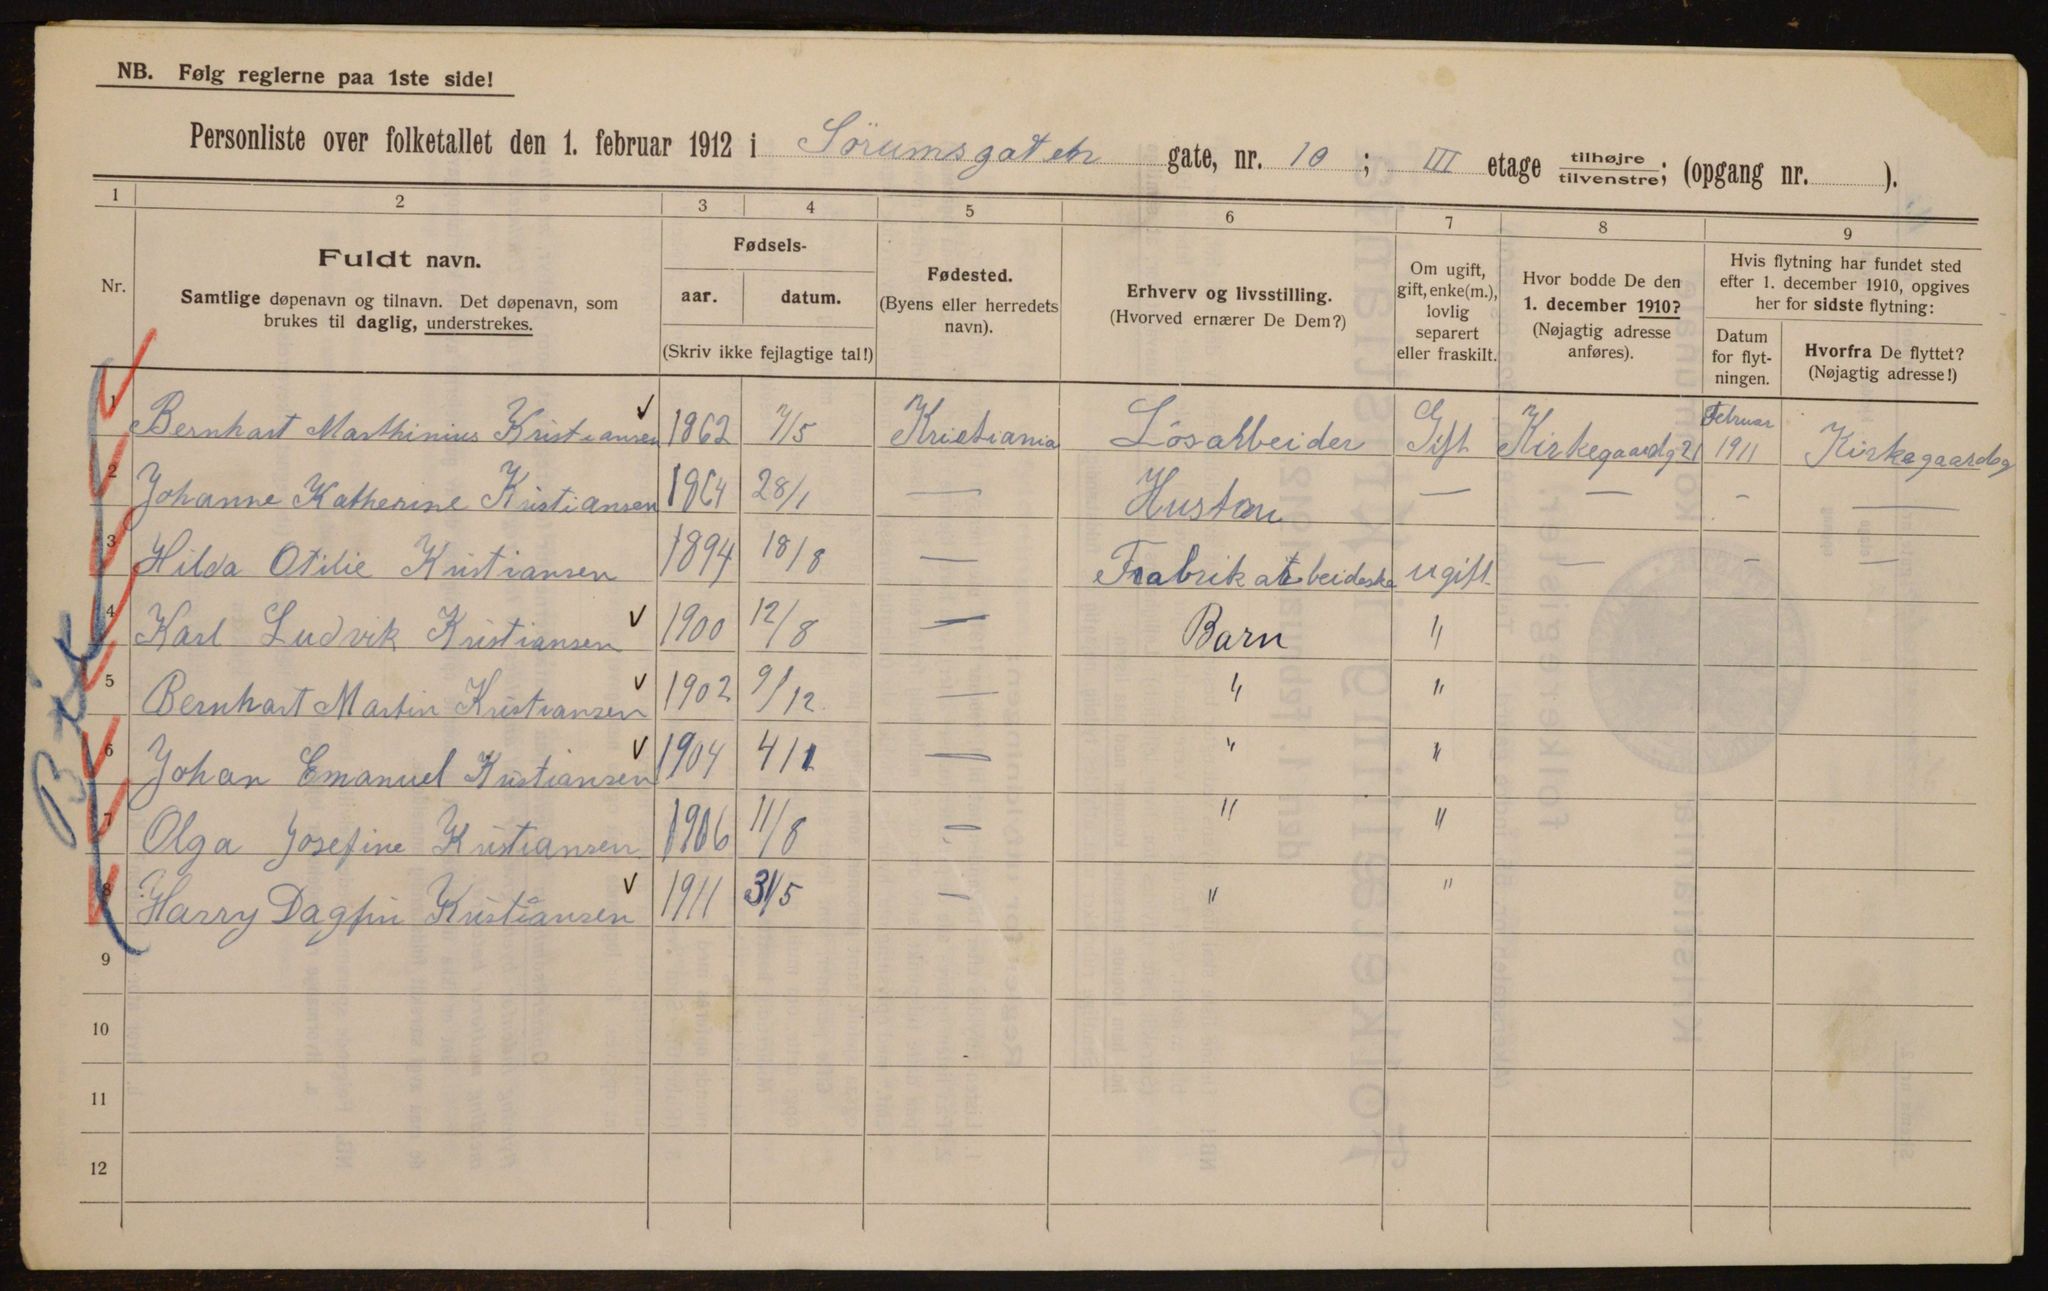 NB. Følg reglerne paa 1ste side!
Personliste over folketallet den 1. februar 1912 i Sörumsgaten gate, nr. 10; III etage tilhøjre tilvenstre; (opgang nr. ).
1 2 3 4 5 6 7 8 9
Nr.
Fuldt navn.
Samtlige døpenavn og tilnavn. Det døpenavn, som
brukes til daglig, understrekes.
Fødsels-
aar. datum.
(Skriv ikke fejlagtige tal!)
Fødested.
(Byens eller herredets
navn).
Erhverv og livsstilling.
(Hvorved ernærer De Dem?)
Om ugift,
gift, enke(m.),
lovlig
separert
eller fraskilt.
Hvor bodde De den
1. december 1910?
(Nøjagtig adresse
anføres).
Hvis flytning har fundet sted
efter 1. december 1910, opgives
her for sidste flytning:
Datum
for flyt-
ningen.
Hvorfra De flyttet?
(Nøjagtig adresse!)
1 Bernhart Marthinius Kristiansen 1862 7/5 Kristiania Lösarbeider Gift Kirkegaardg 21 Februar 1911 Kirkegaardsg
2 Johanne Katherine Kristiansen 1864 28/1 — Hustru — — — —
3 Hilda Otilie Kristiansen 1894 18/8 — Fabrikarbeideske ugift — — —
4 Karl Ludvik Kristiansen 1900 12/8 — Barn "
5 Bernhart Martin Kristiansen 1902 9/12 — " "
6 Johan Emanuel Kristiansen 1904 4/1 — " "
7 Olga Josefine Kristiansen 1906 11/8 — " "
8 Harry Dagfin Kristiansen 1911 31/5 — " "
9
10
11
12